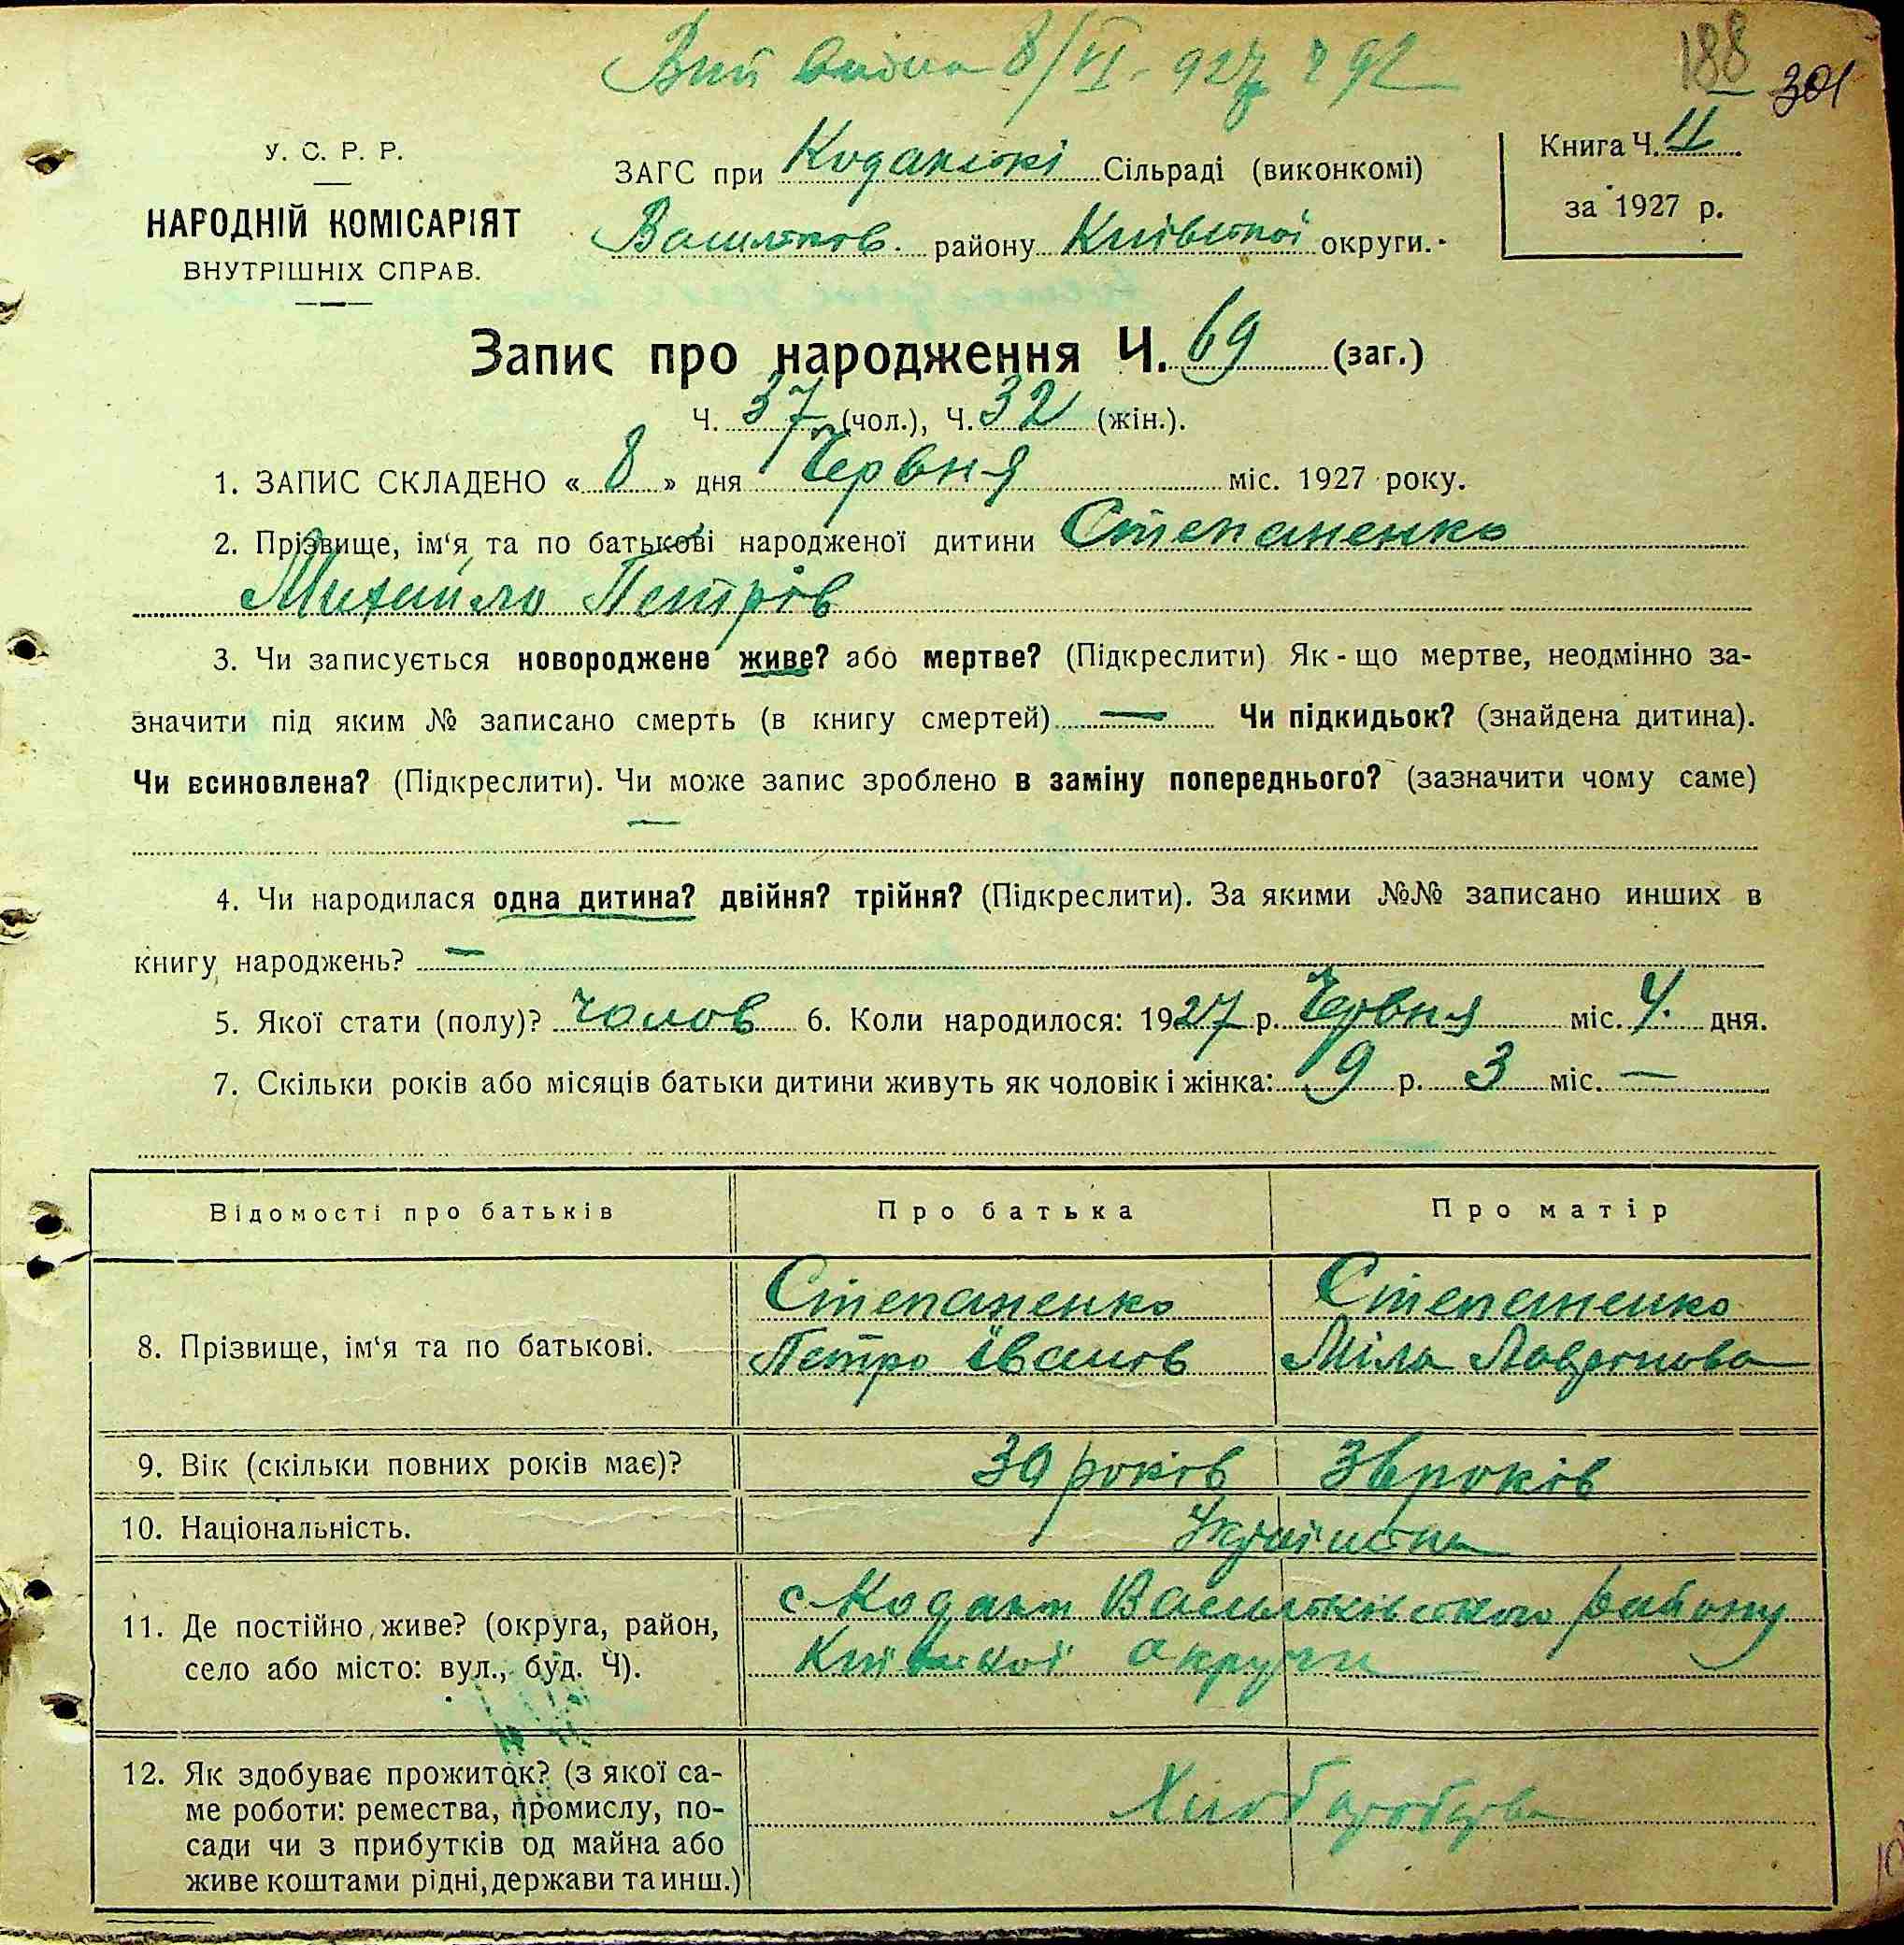 Вип видана 8/VI - 927 р 92
188
301
У. С. Р. Р.
НАРОДНІЙ КОМІСАРІЯТ
ВНУТРІШНІХ СПРАВ.
ЗАГС при Коданські Сільраді (виконкомі)
Васильков. району Київської округи.
Книга Ч. II
за 1927 р.
Запис про народження Ч. 69 (заг.)
Ч. 37 (чол.), Ч. 32 (жін.).
1. ЗАПИС СКЛАДЕНО « 8 » дня Червня міс. 1927 року.
2. Прізвище, ім‘я та по батькові народженої дитини Степаненко
Михайло Петрів
3. Чи записується новороджене живе? або мертве? (Підкреслити) Як-що мертве, неодмінно за-
значити під яким № записано смерть (в книгу смертей) — Чи підкидьок? (знайдена дитина).
Чи всиновлена? (Підкреслити). Чи може запис зроблено в заміну попереднього? (зазначити чому саме)
—
4. Чи народилася одна дитина? двійня? трійня? (Підкреслити). За якими №№ записано инших в
книгу народжень? —
5. Якої стати (полу)? чолов 6. Коли народилося: 1927 р. Червня міс. 4. дня.
7. Скільки років або місяців батьки дитини живуть як чоловік і жінка: 9 р. 3 міс. —
Відомості про батьків Про батька Про матір
8. Прізвище, ім‘я та по батькові.
Степаненко Степаненко
Петро Іванов Міла
9. Вік (скільки повних років має)? 30 років 36 років
10. Національність. Українська
11. Де постійно живе? (округа, район,
село або місто: вул., буд. Ч).
с Кодаки Васильківського району
Київської округи
12. Як здобуває прожиток? (з якої са-
ме роботи: ремества, промислу, по-
сади чи з прибутків од майна або
живе коштами рідні, держави та инш.)
Хліборобства